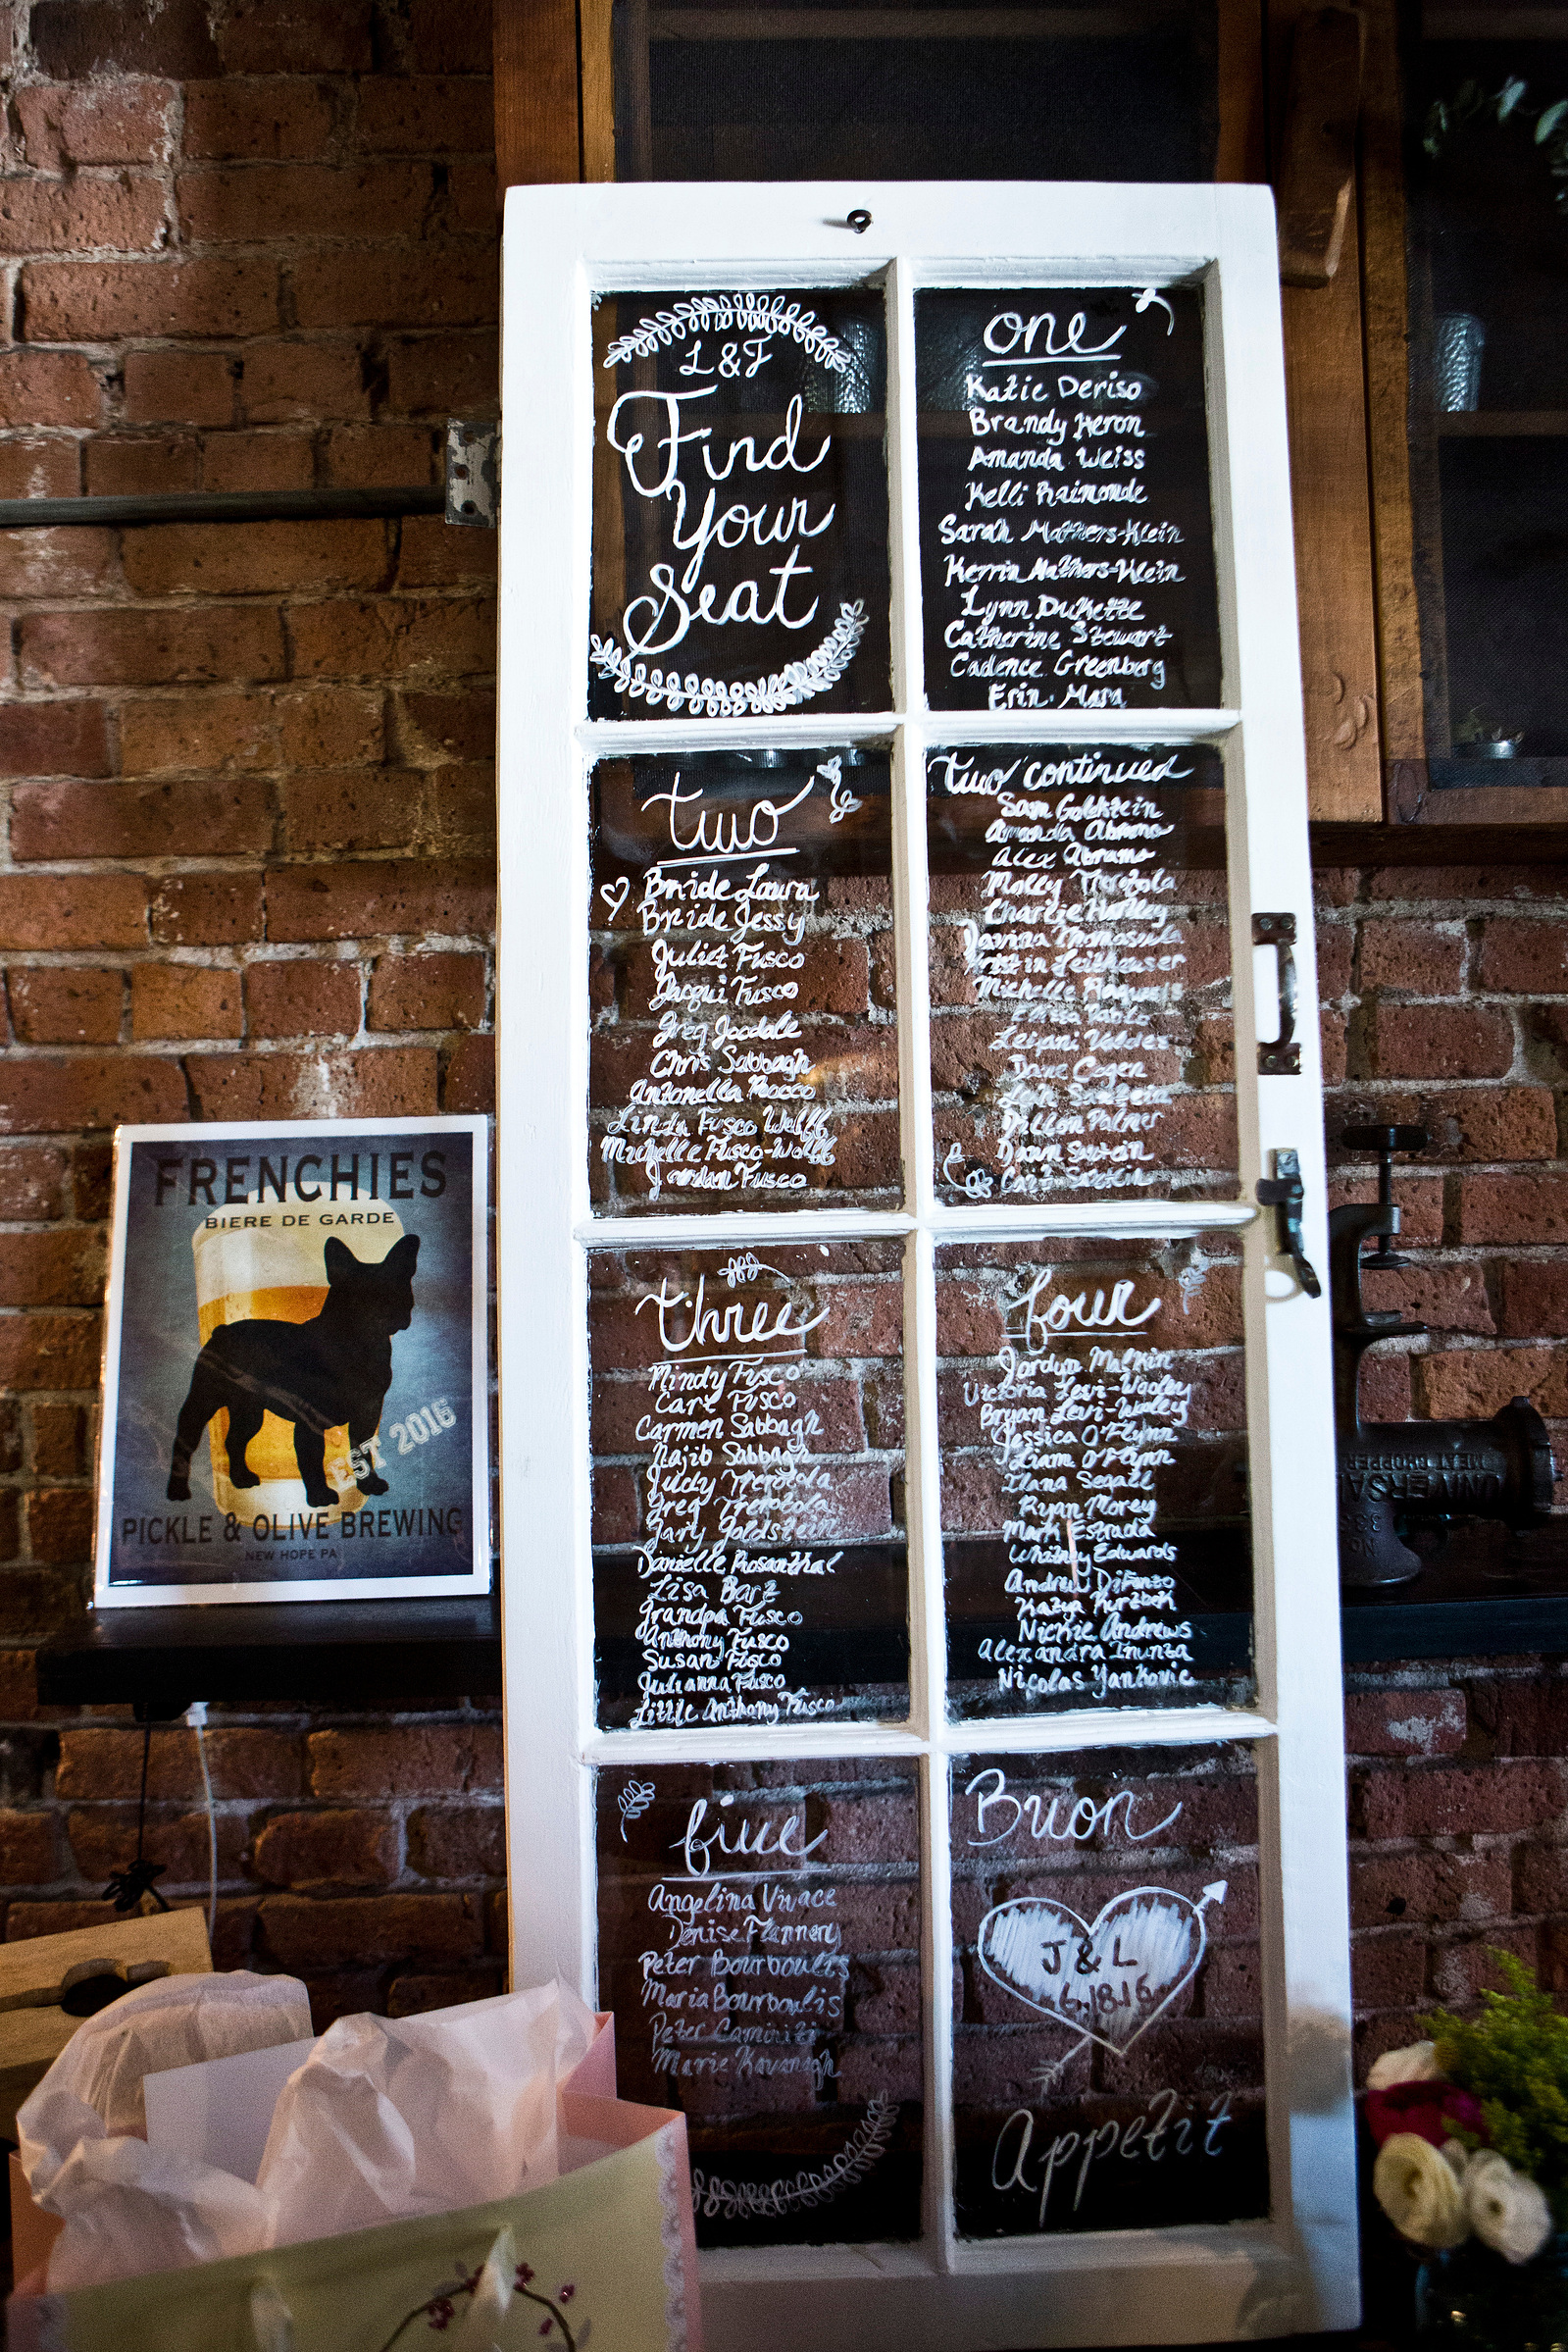 L&J
Find
Your
Seat
one
Katie Deriso
Brandy Heron
Amanda Weiss
Kelli Raimonde
Sarah Mathers-Klein
Kerrin Mathers-Klein
Lynn Dukette
Catherine Stewart
Cadence Greenberg
Erin Mara
two
Bride Laura
Bride Jessy
Juliet Fusco
Jacqui Fusco
Greg Goodale
Chris Sabbagh
Antonella Rocco
Linda Fusco Wolff
Michelle Fusco-Wolff
Jordan Fusco
two continued
Sam Goldstein
Amanda Abramo
Alex Abramo
Molly
Charlie Hartley
Michelle
Leilani Valdes
Dane Cogen
Dillon Palmer
Dawn
three
Mindy Fusco
Carl Fusco
Carmen Sabbagh
Najib Sabbagh
Judy
Greg
Gary Goldstein
Danielle Rosanthal
Lisa Barz
Grandpa Fusco
Anthony Fusco
Susan Fusco
Julianna Fusco
Little Anthony Fusco
four
Jordyn Malkin
Victoria Levi-Wooley
Bryan Levi-Wooley
Jessica O'Flynn
Liam O'Flynn
Ilana Segall
Ryan Morey
Mark Estrada
Whitney Edwards
Andrew DiFonzo
Katya
Nickie Andrews
Alexandra
Nicolas Yankovic
five
Angelina Vivace
Denise Flannery
Peter Bourboulis
Maria Bourboulis
Peter
Marie Kavanagh
Buon
J & L
6.18.16
Appetit
FRENCHIES
BIERE DE GARDE
EST 2016
PICKLE & OLIVE BREWING
NEW HOPE PA
UNIVERSAL
MEAT CHOPPER